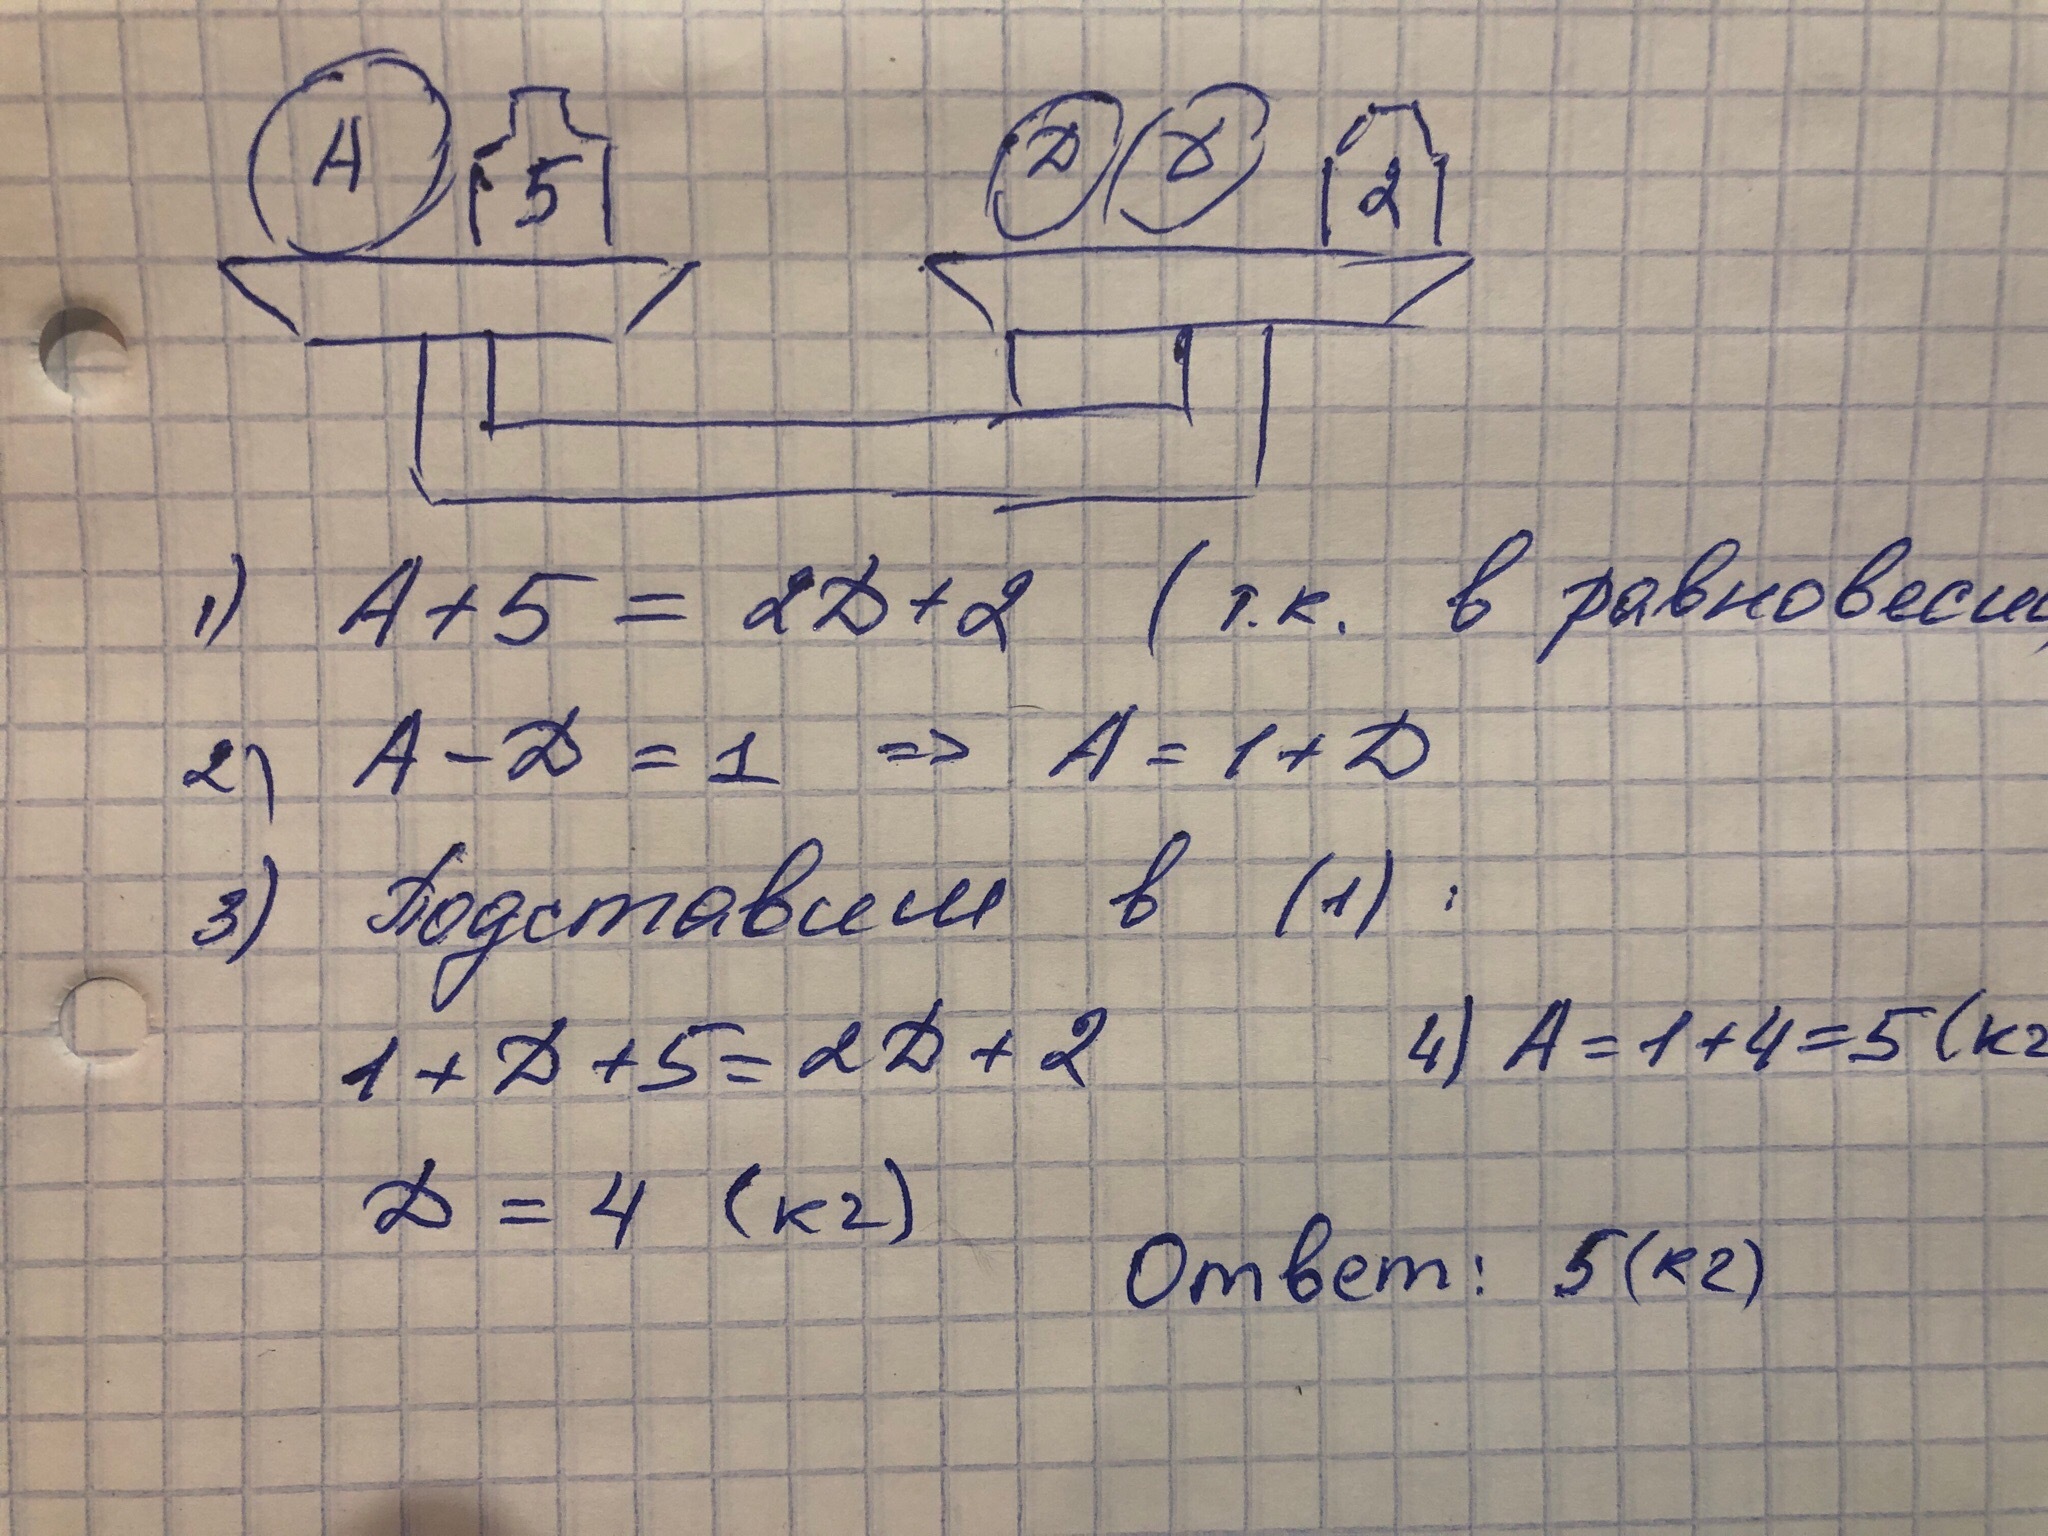 А 5 Д Д 2
1) А + 5 = 2Д + 2 (т.к. в равновеси
2) А - Д = 1 => А = 1 + Д
3) Подставим в (1):
1 + Д + 5 = 2Д + 2 4) А = 1 + 4 = 5 (кг
Д = 4 (кг)
Ответ: 5 (кг)